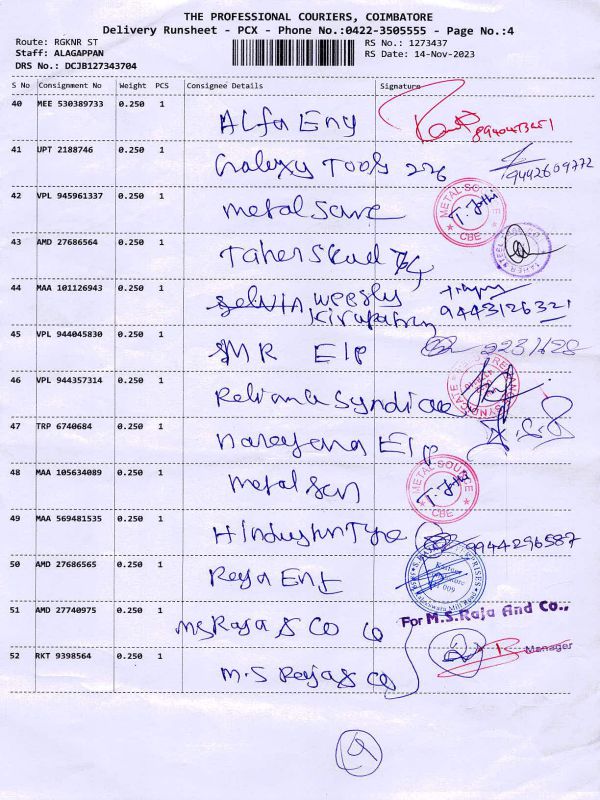 THE PROFESSIONAL COURIERS, COIMBATORE
Delivery Runsheet - PCX - Phone No.:0422-3505555 - Page No.:4
Route: RGKNR ST
RS No.: 1273437
Staff: ALAGAPPAN
RS Date: 14-Nov-2023
DRS No.: DCJB127343704
S No Consignment No Weight PCS Consignee Details Signature
40 MEE 530389733 0.250 1 Alfa Eng
41 UPT 2188746 0.250 1 Galaxy Tools 226 9442609772
42 VPL 945961337 0.250 1 metal Sore METAL SOURCE CBE T. Jothi
43 AMD 27686564 0.250 1 Taher TAHER STEEL
44 MAA 101126943 0.250 1 selvia weesly
kirupatrny 9443126321
45 VPL 944045830 0.250 1 SMR Elp
46 VPL 944357314 0.250 1 Reliance Syndicae SYNDICATE
47 TRP 6740684 0.250 1 Narayana Elp
48 MAA 105634089 0.250 1 metal Son METAL SOURCE CBE T. Jothi
49 MAA 569481535 0.250 1 Hindustan Type 9944296587
50 AMD 27686565 0.250 1 Reya Ent
51 AMD 27740975 0.250 1 MS Raja & Co
For M.S.Raja And Co.,
52 RKT 9398564 0.250 1 M.S Raja & Co
Manager